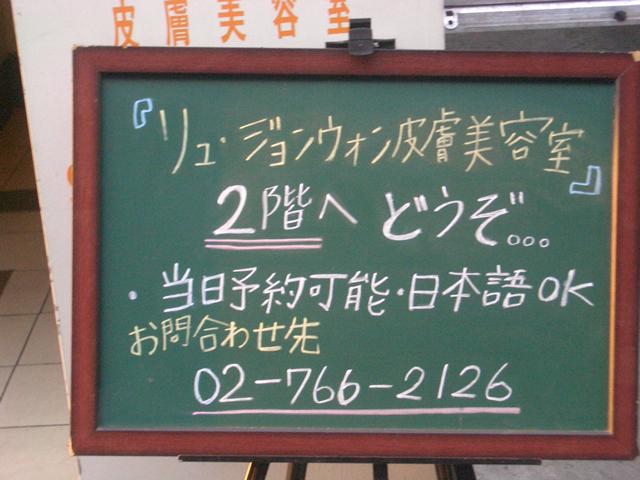 皮膚美容室
『リュ・ジョンウォン皮膚美容室』
2階へ どうぞ...
・当日予約可能・日本語OK
お問合わせ先
02-766-2126